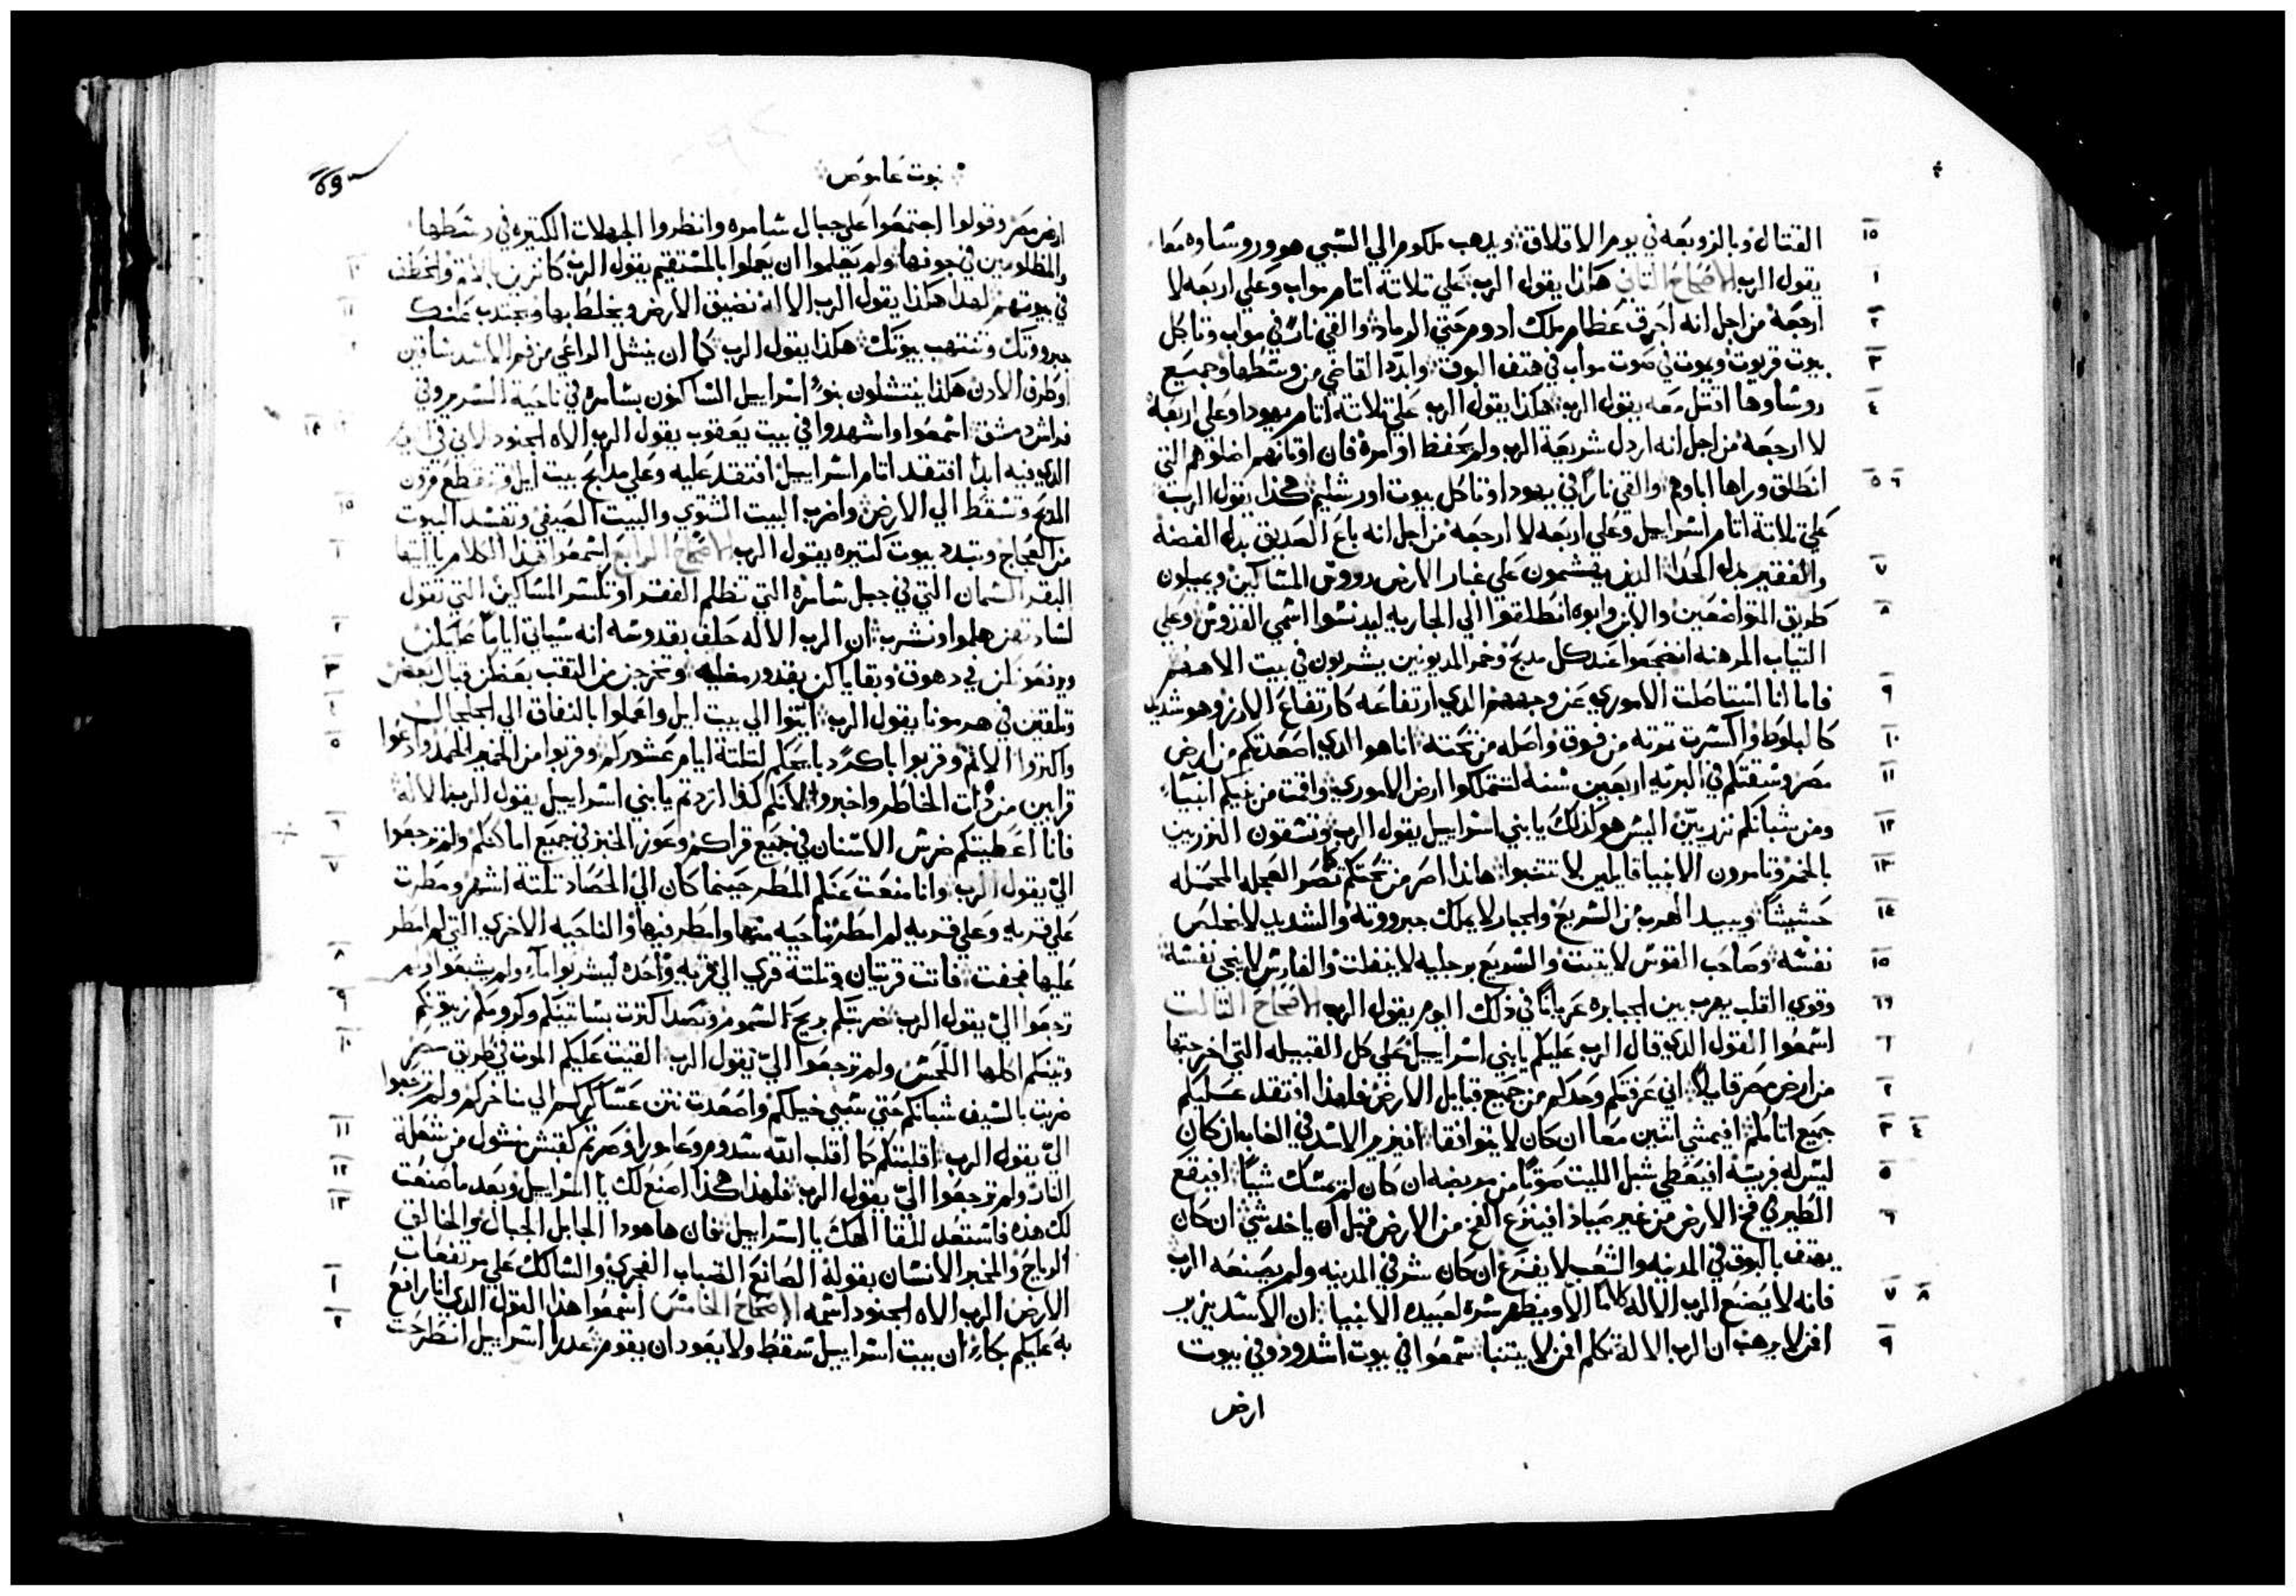 القتال وبالزوبعه في يوم الاقلاق ويدهب ملكوم الي السبي هو وروساوه معا
يقول الرب الاصحاح التاني هكذا يقول الرب علي تلاته اتام مواب وعلي اربعه لا
ارجعه من اجل انه احرق عظام ملك ادوم حتي الرماد والقي نارًا في مواب وتاكل
بيوت قريوت ويموت في صوت مواب في هتف البوق وابدد القاضي من وسطها وجميع
روساوها اقتل معه يقول الرب هكذا يقول الرب علي تلاته اتام يهودا وعلي اربعه
لا ارجعه من اجل انه اردل شريعة الرب ولم يحفظ اوامره فان اوتانهم اضلوهم التي
انطلق وراها اباوهم والقي نارًا في يهودا وتاكل بيوت اورشليم هكذا يقول الرب
علي تلاتة اتام اسراييل وعلي اربعه لا ارجعه من اجل انه باع الصديق بدل الفضه
والفقير بدل الحدا الدين يهشمون علي غبار الارض رووس المساكين ويميلون
طريق المتواضعين والابن وابوه انطلقوا الي الجاريه ليدنسوا اسمي القدوس وعلي
التياب المرهنه انضجعوا عند كل مدبح وخمر المديونين يشربون في بيت الاههم
فاما انا استاصلت الاموري عن وجههم الدي ارتفاعه كارتفاع الارز وهو شديد
كالبلوط واكسرت تمرته من فوق واصله من تحته انا هو الدي اصعدتكم من ارض
مصر وسقتكم في البريه اربعين سنه لتتملكوا ارض الاموري واقمت من بنيكم انبياء
ومن شبانكم نزريين اليس هو كذلك يا بني اسراييل يقول الرب وتسقون النزريين
بالخمر وتامرون الانبيا قايلين لا تتنبوا هاندا اصر من تحتكم كما تصر العجله المحمله
حشيشًا ويبيد الهرب من السريع والجبار لا يملك جبروته والشديد لا يخلص
نفسه وصاحب القوس لا يتبت والسريع برجليه لا ينفلت والفارس لا ينجي نفسه
وقوي القلب يهرب بين الجبابره عريانًا في ذلك اليوم يقول الرب الاصحاح التالت
اسمعوا القول الدي قال الرب عليكم يا بني اسراييل علي كل القبيله التي اخرجتها
من ارض مصر قايلًا اني عرفتكم وحدكم من جميع قبايل الارض فلهذا افتقد عليكم
جميع اتامكم افيمشي اتنين معا ان كان لا يتوافقا افيزير الاسد في الغاب ان كان
ليس له فريسه افيعطي شبل الليت صوتًا من مربضه ان كان لم يمسك شيًا افيقع
الطير في فخ الارض من غير صياد افينزع الفخ من الارض قبل ان ياخد شي ان كان
يهتف بالبوق في المدينه والشعب لا يفزع ان كان شر في المدينه ولم يصنعه الرب
فانه لا يصنع الرب الاله كلامًا الا ويظهر سره لعبيده الانبيا ان الاسد يزير
افمن لا يرهب ان الرب الاله تكلم افمن لا يتنبا سمعوا في بيوت اشدود وفي بيوت
ارض
نبوت عاموص
ارض مصر وقولوا اجتمعوا علي جبال سامره وانظروا الجهالات الكتيره في وسطها
والمظلومين في جوفها ولم يعلموا ان يعملوا بالمستقيم يقول الرب كانزين بالاتم والخطف
في بيوتهم لهدا هكذا يقول الرب الاله تضيق الارض ويحلط بها ويجتدب عنك
جبروتك وتنتهب بيوتك هكذا يقول الرب كما ان ينشل الراعي من فم الاسد ساقين
او طرف الادن هكذا ينتشلون بنو اسراييل الساكنون بسامره في ناحية السرير وفي
فراش دمشق اسمعوا واشهدوا في بيت يعقوب يقول الرب الاه الجنود لاني في اليوم
الدي فيه ابدا افتقد اتام اسراييل افتقد عليه وعلي مدابح بيت ايل وتقطع قرون
المدبح وتسقط الي الارض واضرب البيت الشتوي والبيت الصيفي وتفسد البيوت
من العجاج وتبدد بيوت كتيره يقول الرب الاصحاح الرابع اسمعوا هذا الكلام يا ايتها
البقر السمان التي في جبل سامره التي تظلم الفقرا وتكسر المساكين التي تقول
لساداتهن هلموا ونشرب ان الرب الاله حلف بقدوسه انه سياتي اليامًا عليكن
ويرفعونكن في دهوق وبقاياكن بقدور مغليه وتخرجن من النقب بعضكن قبال بعض
وتلقين في هرمونا يقول الرب ايتوا الي بيت ايل واعملوا بالنفاق الي الجلجال
واكتروا الاتم وقربوا باكرًا دبايحكم لتلتة ايام عشوركم وقربوا من الخمير الحمد وادعوا
قرابين من ذات الخاطر واخبروا لانكم كذا اردتم يا بني اسراييل يقول الرب الاله
فانا اعطيتكم ضرس الاسنان في جميع قراكم وعوز الخبز في جميع اماكنكم ولم ترجعوا
الي يقول الرب وانا منعت عنكم المطر حينما كان الي الحصاد تلتة اشهر ومطرت
علي قريه وعلي قريه لم امطر ناحيه منها وامطر فيها والناحيه الاخري التي لم امطر
عليها فجفت فاتت قريتان وتلتة قري الي قريه واحده ليشربوا ماء ولم يشبعوا ولم
ترجعوا الي يقول الرب ضربتكم بريح السموم وبصدا كترت بساتينكم وكرومكم زيتونكم
وتينكم اكلها اللحس ولم ترجعوا الي يقول الرب القيت عليكم الموت في طريق مصر
ضربت بالسيف شبانكم حتي سبي خيلكم واصعدت نتن عساكركم الي مناخركم ولم ترجعوا
الي يقول الرب اقلبتكم كما اقلب الله سدوم وعامورا وصرتم كقبس منشول من شعلة
النار ولم ترجعوا الي يقول الرب فلهذا هكذا اصنع لك يا اسراييل وبعد ما صنعت
لك هذه فاستعد للقا الهك يا اسراييل فان هاهودا الجابل الجبال والخالق
الرياح والمخبر الانسان بقوله الصانع الضباب الفجري والسالك علي مرتفعات
الارض الرب الاه الجنود اسمه الاصحاح الخامس اسمعوا هذا القول الدي انا رافع
به عليكم بكاء ان بيت اسراييل سقط ولا يعود ان يقوم عدرا اسراييل انطرحت